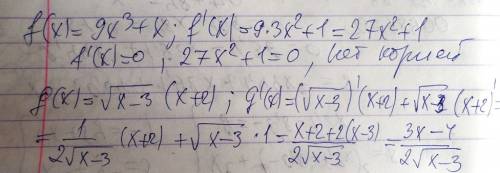 f(x)=9x³+x; f'(x)=9·3x²+1=27x²+1
f'(x)=0; 27x²+1=0, нет корней
g(x)=√(x-3) (x+2); g'(x)=(√(x-3))'(x+2)+√(x-3) (x+2)'=
= 1/(2√(x-3)) (x+2)+√(x-3)·1= (x+2+2(x-3))/(2√(x-3)) = (3x-4)/(2√(x-3))